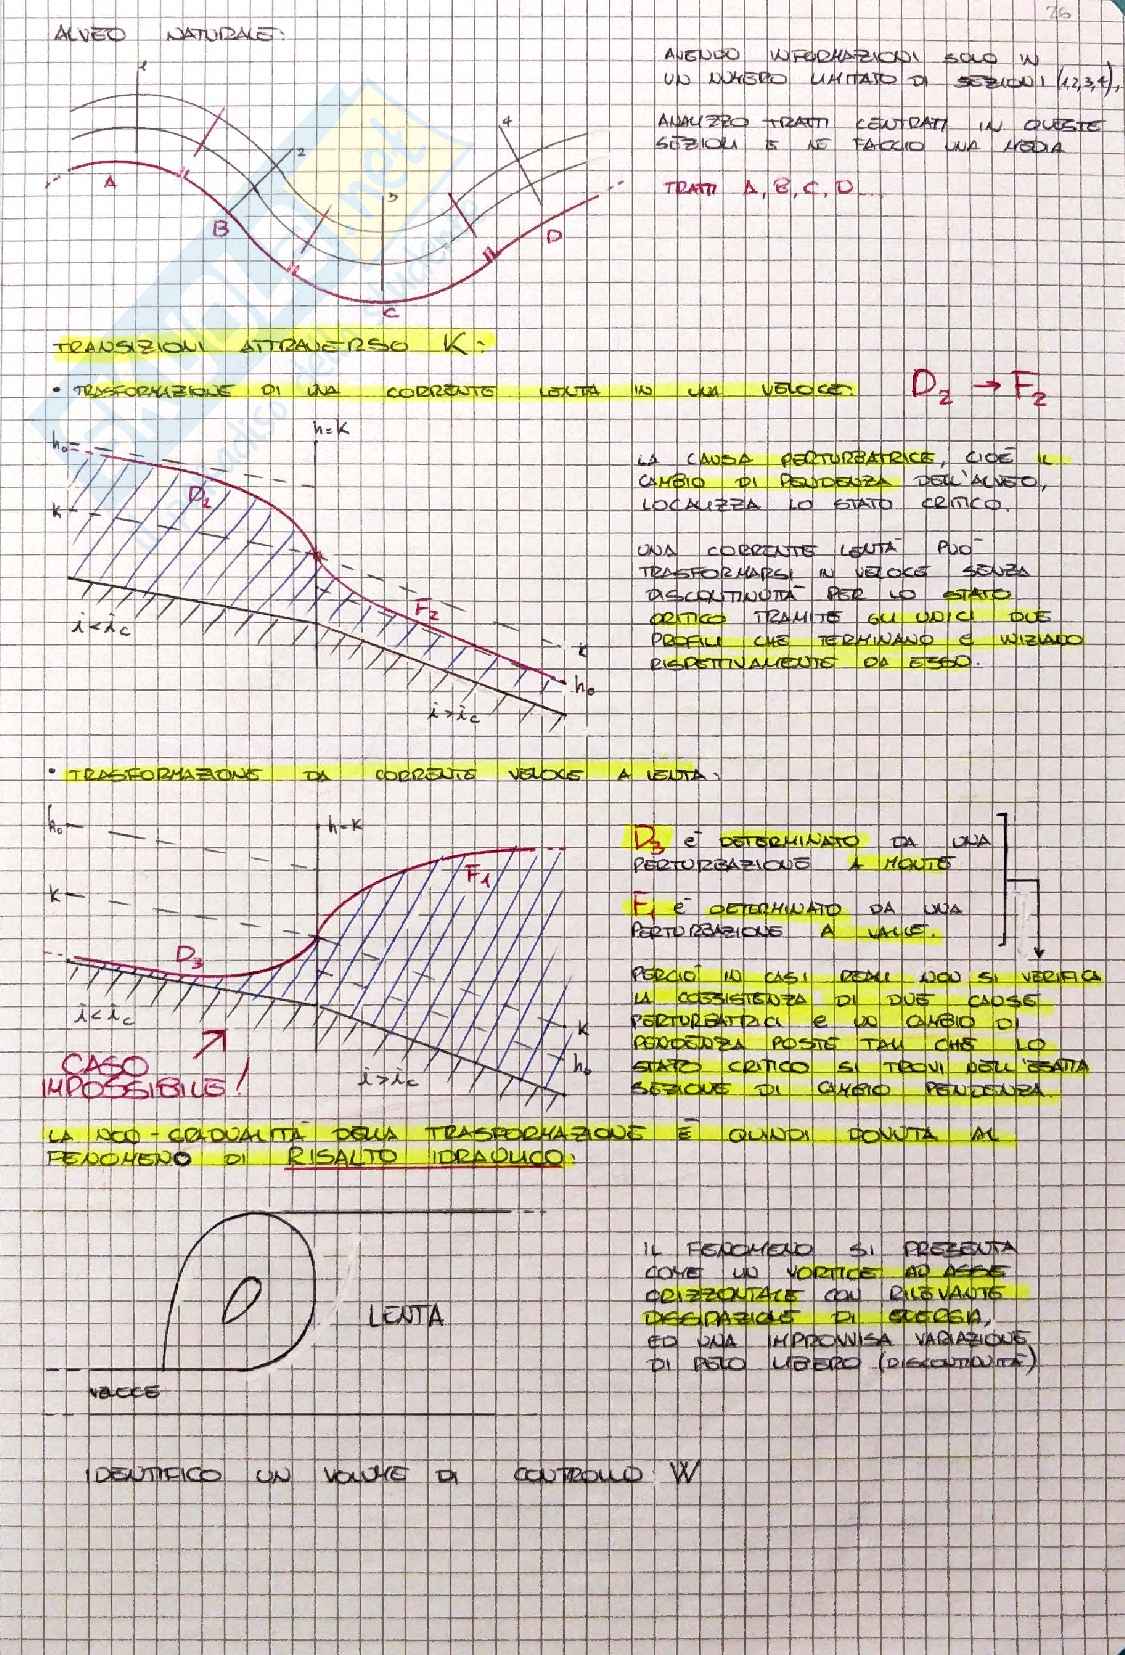 26
ALVEO NATURALE:
AVENDO INFORMAZIONI SOLO IN
UN NUMERO LIMITATO DI SEZIONI (1,2,3,4),
ANALIZZO TRATTI CENTRATI IN QUESTE
SEZIONI E NE FACCIO UNA MEDIA
TRATTI A, B, C, D
1
2
3
4
A
B
C
D
TRANSIZIONI ATTRAVERSO K:
• TRASFORMAZIONE DI UNA CORRENTE LENTA IN UNA VELOCE: D2 → F2
h=K
h0
D2
K
F2
K
h0
i<ic
i>ic
LA CAUSA PERTURBATRICE, CIOÈ IL
CAMBIO DI PENDENZA DELL'ALVEO,
LOCALIZZA LO STATO CRITICO.
UNA CORRENTE LENTA PUÒ
TRASFORMARSI IN VELOCE SENZA
DISCONTINUITÀ PER LO STATO
CRITICO TRAMITE GLI UNICI DUE
PROFILI CHE TERMINANO E INIZIANO
RISPETTIVAMENTE DA ESSO.
• TRASFORMAZIONE DA CORRENTE VELOCE A LENTA:
h0
h=K
K
F1
D3
i<ic
i>ic
K
h0
CASO
IMPOSSIBILE!
D3 È DETERMINATO DA UNA
PERTURBAZIONE A MONTE
F1 È DETERMINATO DA UNA
PERTURBAZIONE A VALLE.
PERCIÒ IN CASI REALI NON SI VERIFICA
LA COESISTENZA DI DUE CAUSE
PERTURBATRICI E UN CAMBIO DI
PENDENZA POSTE TALI CHE LO
STATO CRITICO SI TROVI NELL'ESATTA
SEZIONE DI CAMBIO PENDENZA.
LA NON-GRADUALITÀ DELLA TRASFORMAZIONE È QUINDI DOVUTA AL
FENOMENO DI RISALTO IDRAULICO:
LENTA
VELOCE
IL FENOMENO SI PRESENTA
COME UN VORTICE AD ASSE
ORIZZONTALE CON RILEVANTE
DISSIPAZIONE DI ENERGIA,
ED UNA IMPROVVISA VARIAZIONE
DI PELO LIBERO (DISCONTINUITÀ)
IDENTIFICO UN VOLUME DI CONTROLLO W